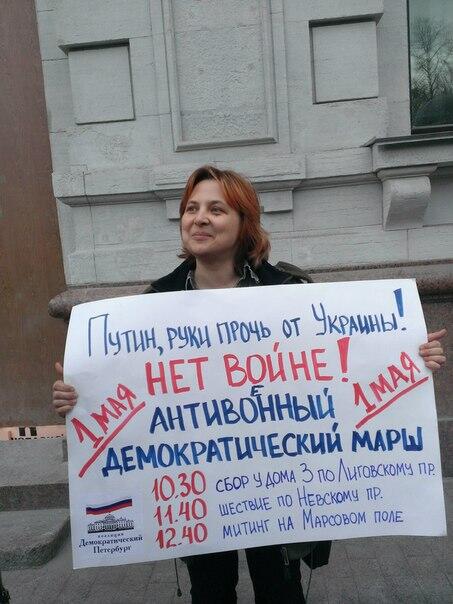 Путин, руки прочь от Украины!
НЕТ ВОЙНЕ!
1 МАЯ
Е
1 МАЯ
АНТИВОННЫЙ
ДЕМОКРАТИЧЕСКИЙ МАРШ
10.30 СБОР У ДОМА 3 ПО ЛИГОВСКОМУ ПР.
11.40 ШЕСТВИЕ ПО НЕВСКОМУ ПР.
12.40 МИТИНГ НА МАРСОВОМ ПОЛЕ
коалиция
Демократический
Петербург